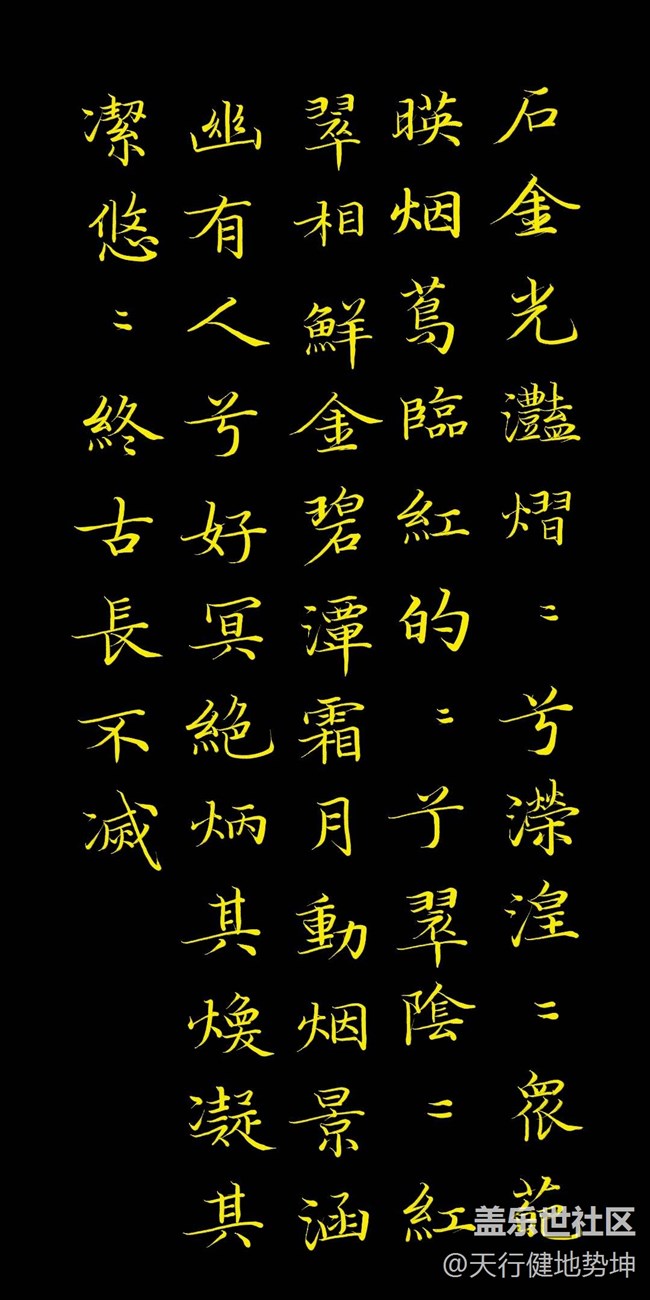 石金光灩熠〻兮濴湟〻眾葩
暎烟蔦臨紅的〻亍翠陰〻紅
翠相鮮金碧潭霜月動烟景涵
幽有人兮好冥絕炳其煥凝其
潔悠〻終古長不滅
盖乐世社区
@天行健地势坤